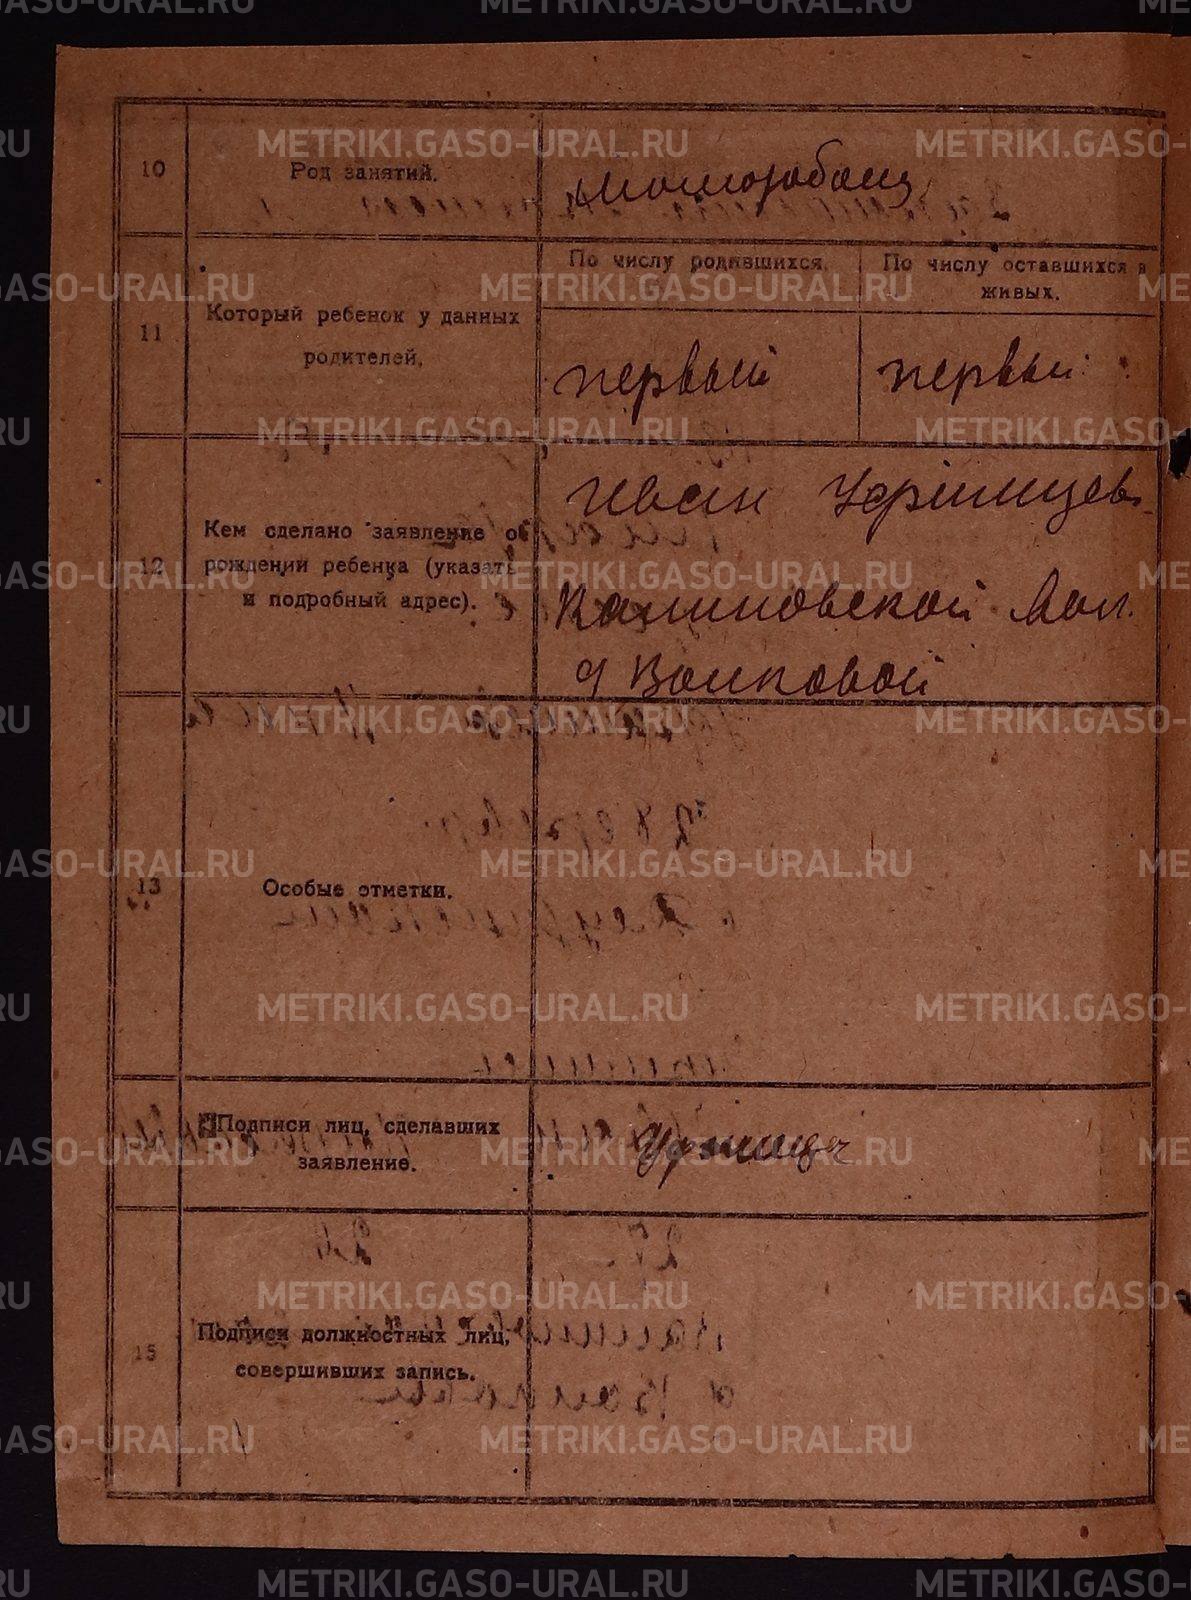 10
Род занятий.
11
Который ребенок у данных
родителей.
По числу родившихся.
По числу оставшихся в
живых.
первый
первый
12
Кем сделано заявление о
рождении ребенка (указать
и подробный адрес).
Иван
Калиновской Вол.
д Волковой
13
Особые отметки.
Подписи лиц, сделавших
заявление.
15
Подписи должностных лиц,
совершивших запись.
METRIKI.GASO-URAL.RU